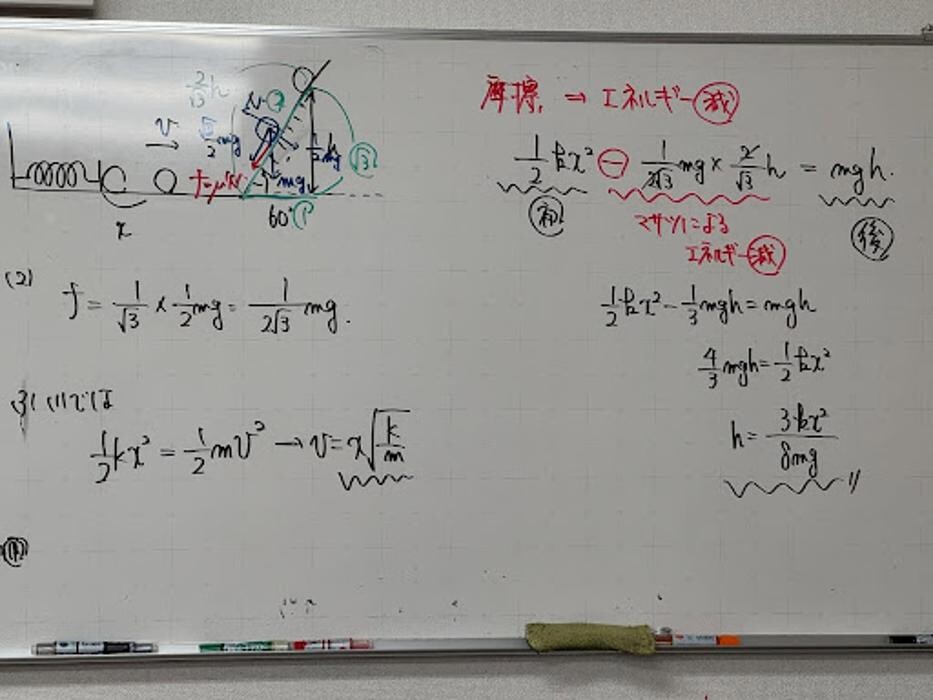 2/√3 h
v
√3/2 mg
N
mg
f=μ'N
h
√3
60°
1
x
(2)
f = 1/√3 × 1/2 mg = 1/2√3 mg.
(1)では
1/2 kx² = 1/2 mv² → v = x√(k/m)
摩擦, → エネルギー 減
1/2 kx² − 1/2√3 mg × 2/√3 h = mgh.
初
マサツによる
エネルギー 減
後
1/2 kx² − 1/3 mgh = mgh
4/3 mgh = 1/2 kx²
h = 3kx²/8mg